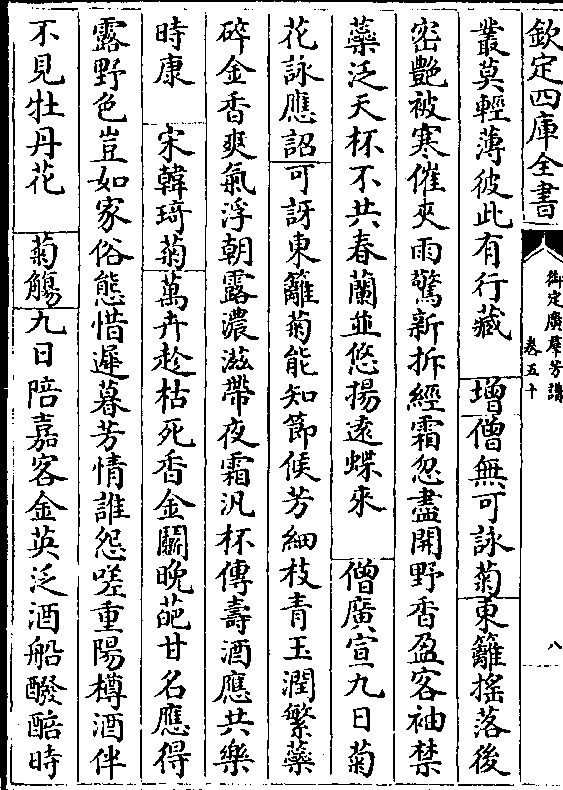 欽定四庫全書
御定廣羣芳譜
卷五十
八
叢莫輕薄彼此有行藏 增僧無可詠菊東籬搖落後
密艷被寒催夾雨驚新拆經霜忽盡開野香盈客袖禁
蘂泛天杯不共春蘭並悠揚遠蝶來 僧廣宣九日菊
花詠應詔可訝東籬菊能知節候芳細枝青玉潤繁蘂
碎金香爽氣浮朝露濃滋帶夜霜汎杯傳壽酒應共樂
時康 宋韓琦菊萬卉趁枯死香金鬭晚葩甘名應得
露野色豈如家俗態惜遲暮芳情誰怨嗟重陽樽酒伴
不見牡丹花 菊觴九日陪嘉客金英泛酒船醱醅時